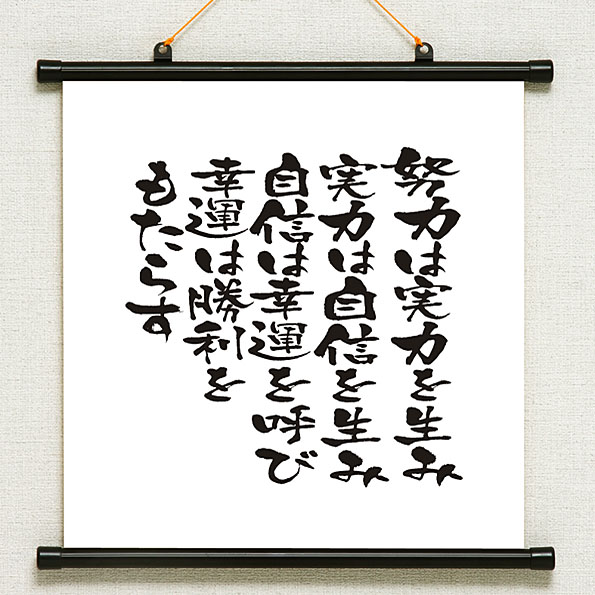 努力は実力を生み
実力は自信を生み
自信は幸運を呼び
幸運は勝利を
もたらす